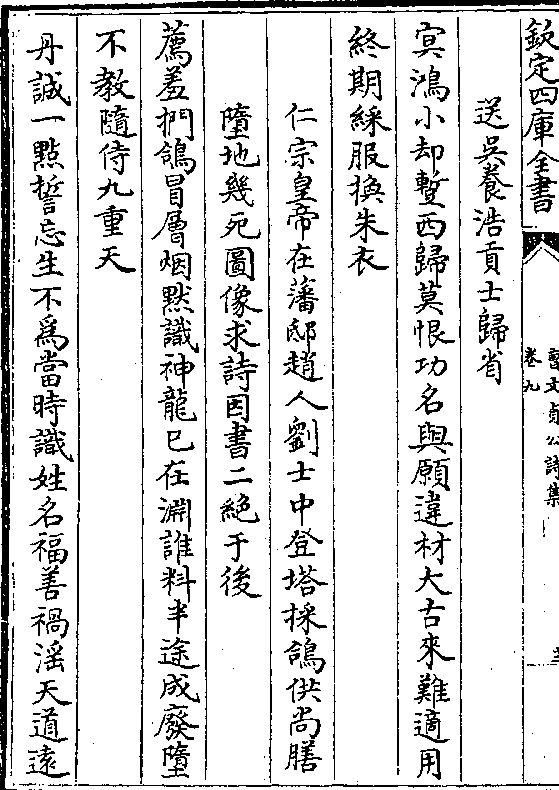 欽定四庫全書
曹文貞公詩集
卷九
送吳養浩貢士歸省
㝠鴻小却蹔西歸莫恨功名與願違材大古來難適用
終期綵服換朱衣
仁宗皇帝在藩邸趙人劉士中登塔採鴿供尚膳
墮地幾死圖像求詩因書二絶于後
薦羞捫鴿冒層烟默識神龍已在淵誰料半途成廢墮
不教隨侍九重天
丹誠一點誓忘生不爲當時識姓名福善禍滛天道遠